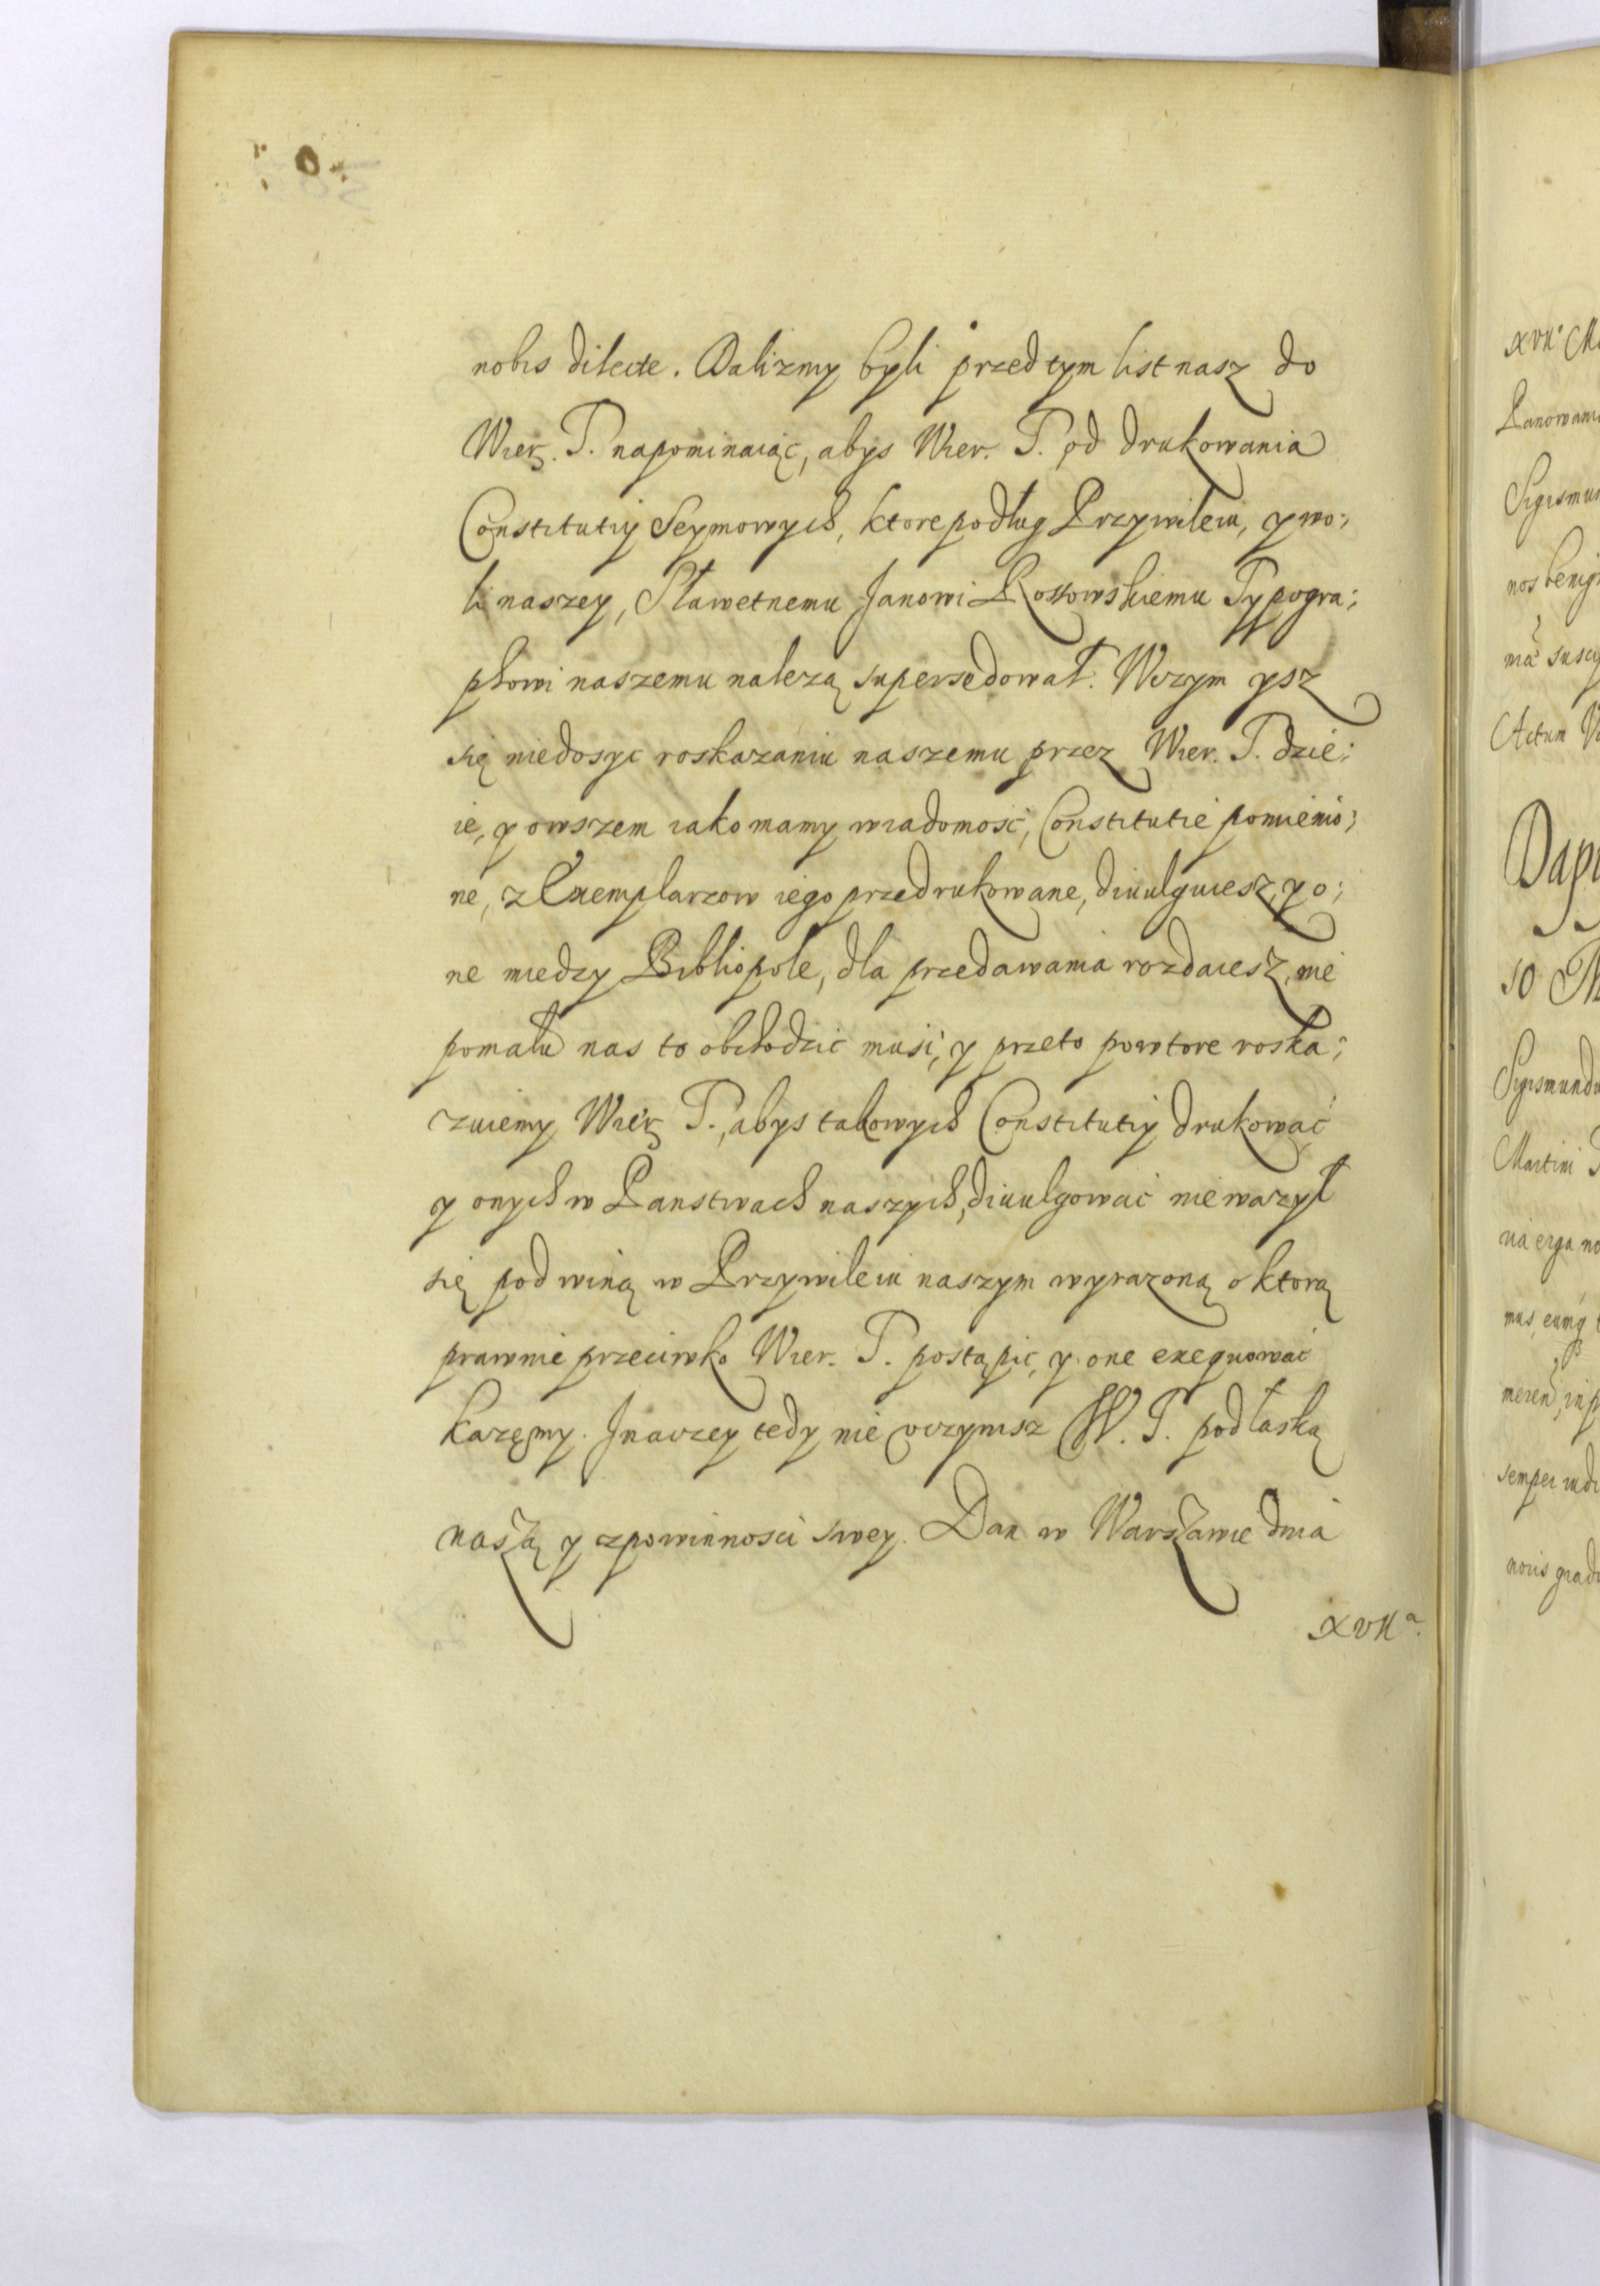 nobis dilecte. Dalizmy byli przed tym list nasz do
Wier. T. napominaiąc, abys Wier. T. od drukowania
Constitutiy Seymowych, ktore podług Przywileiu, y wo:
li naszey, Sławetnemu Janowi Rossowskiemu Typogra:
phowi naszemu nalezą supersedował. Wczym ysz
się niedosyc roskazaniu naszemu przez Wier. T. dzie:
ie, y owszem iako mamy wiadomość, Constitutie pomienio:
ne, z Exemplarzow iego przedrukowane, diuulguiesz, y o:
ne miedzy Bibliopole, dla przedawania rozdaiesz, nie
pomału nas to obchodzic musi, y przeto powtore roska:
zuiemy Wier. T., abys takowych Constitutiy drukować
y onych w Panstwach naszych, diuulgować nie wazył
się pod winą w Przywileiu naszym wyrazoną o ktorą
prawnie przeciwko Wier. T. postąpic, y one exequować
kazęmy. Jnaczey tedy nie vczynisz W. T. pod łaską
naszą y zpowinnosci swey. Dan w Warszawie dnia
XVII<sup>a</sup>.
XVII° Ma
Panowani
Sigismun
nos benig
Actum
10 M
Sigismundu
Martini
uia erga no
semper
noris gradu